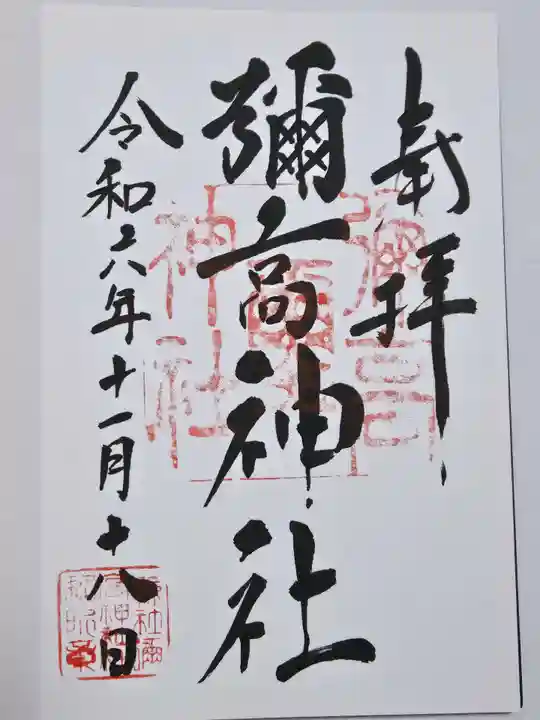 奉拝
彌高神社
令和六年十一月十八日
彌高
神社